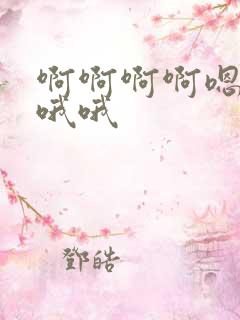 啊啊啊啊嗯
哦哦
鄧皓